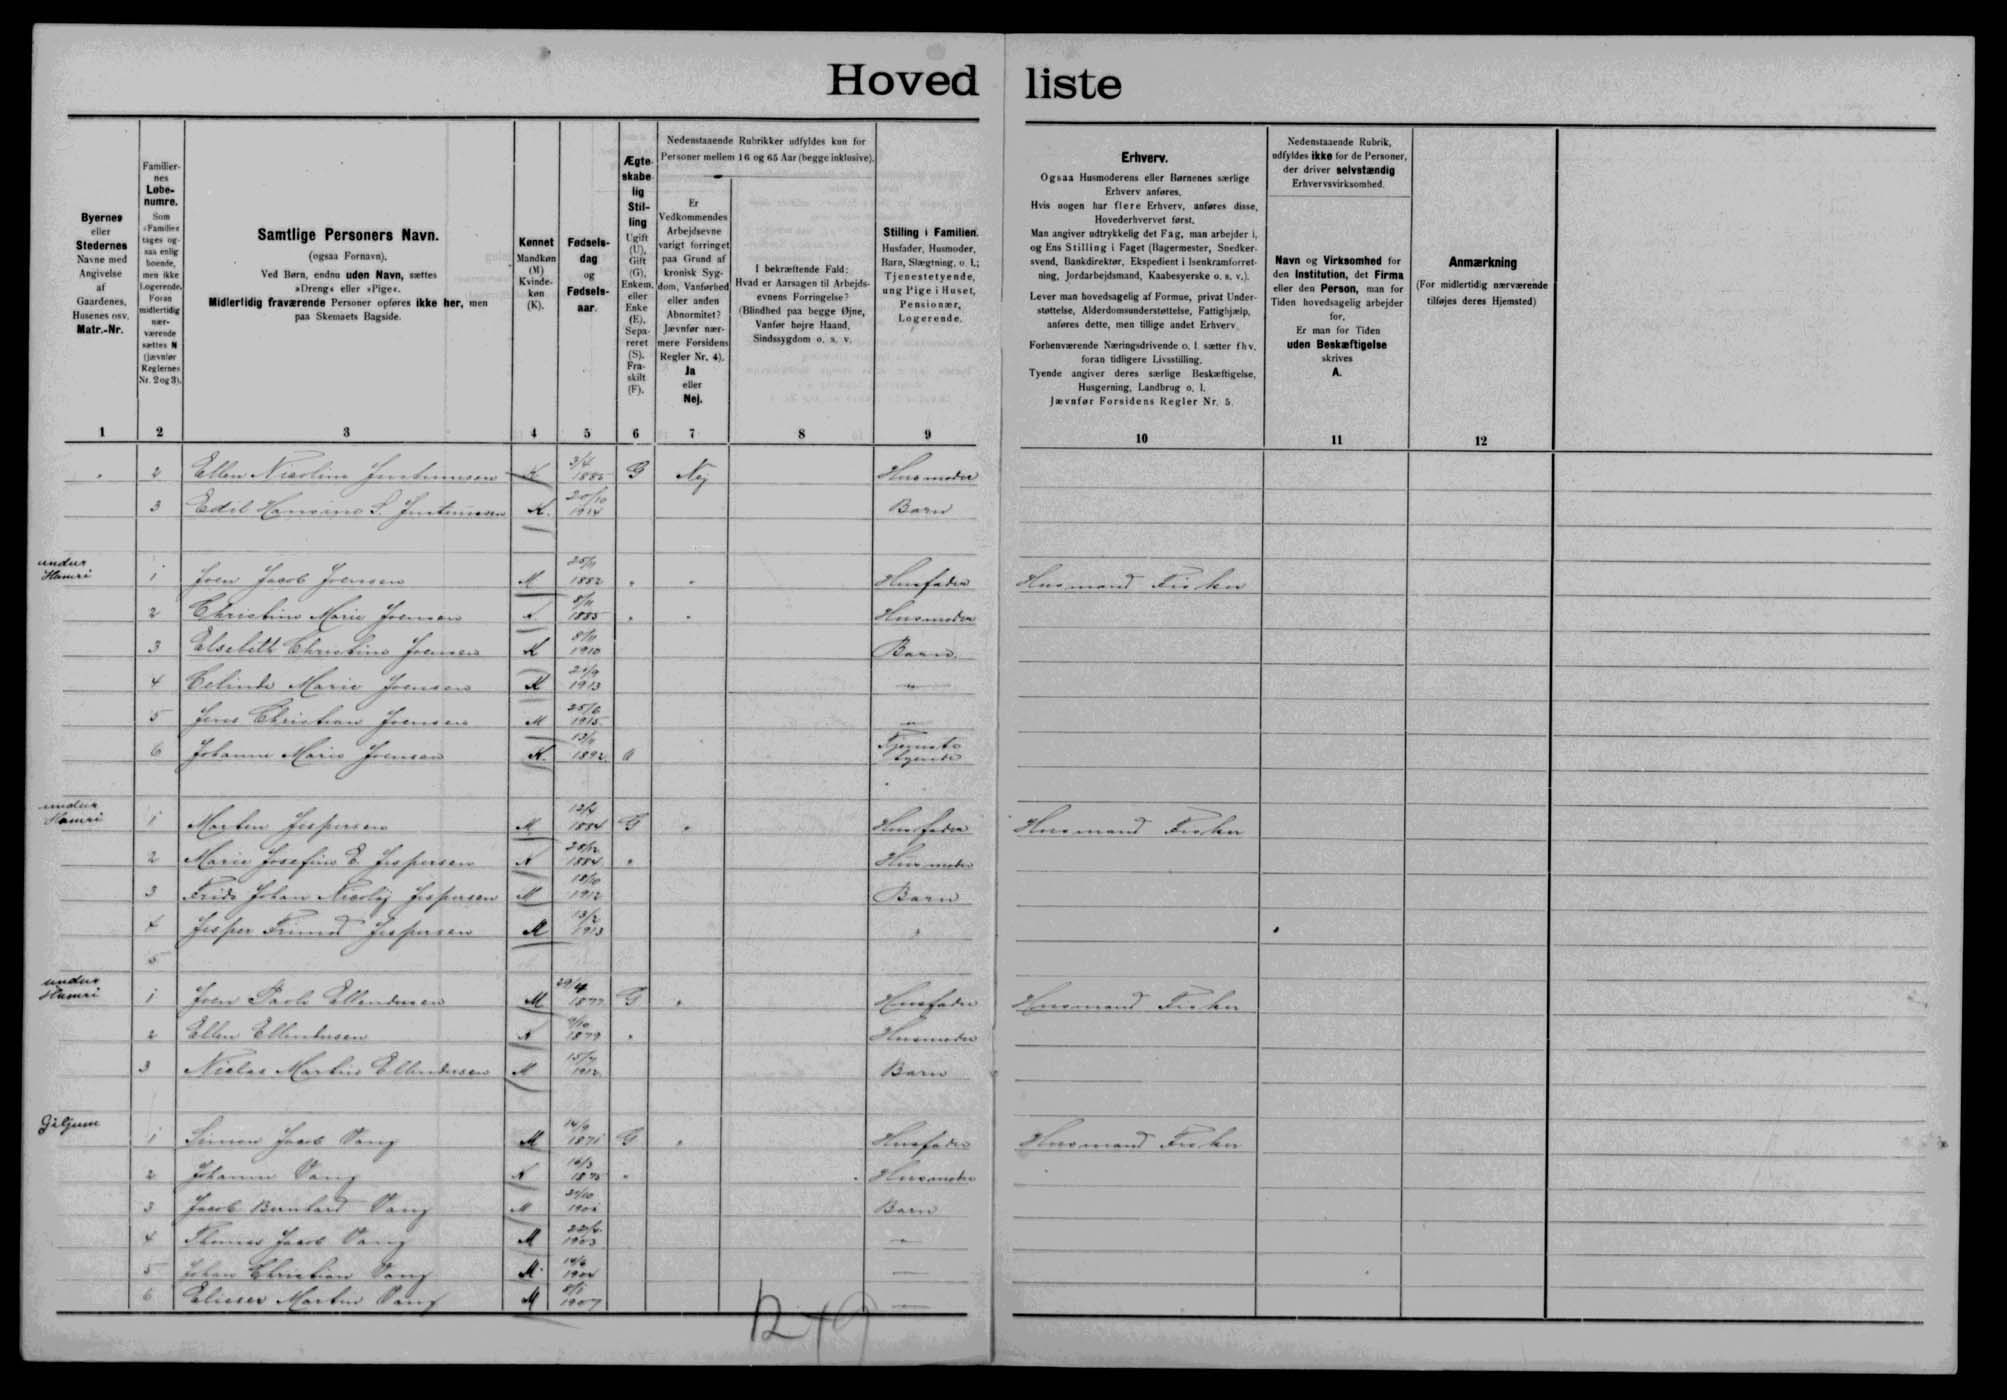 Hoved liste
Byernes
eller
Stedernes
Navne med
Angivelse
af
Gaardenes,
Husenes osv.
Matr.-Nr.
Familier-
nes
Løbe-
numre.
Som
»Familie«
tages og-
saa enlig
boende,
men ikke
Logerende.
Foran
midlertidig
nær-
værende
sættes N
(jævnfør
Reglernes
Nr. 2 og 3).
Samtlige Personers Navn.
(ogsaa Fornavn).
Ved Børn, endnu uden Navn, sættes
»Dreng« eller »Pige«.
Midlertidig fraværende Personer opføres ikke her, men
paa Skemaets Bagside.
Kønnet
Mandkøn
(M)
Kvinde-
køn
(K).
Fødsels-
dag
og
Fødsels-
aar.
Ægte-
skabe-
lig
Stil-
ling
Ugift
(U),
Gift
(G),
Enkem.
eller
Enke
(E),
Sepa-
reret
(S),
Fra-
skilt
(F).
Nedenstaaende Rubrikker udfyldes kun for
Personer mellem 16 og 65 Aar (begge inklusive).
Er
Vedkommendes
Arbejdsevne
varigt forringet
paa Grund af
kronisk Syg-
dom, Vanførhed
eller anden
Abnormitet?
Jævnfør nær-
mere Forsidens
Regler Nr. 4).
Ja
eller
Nej.
I bekræftende Fald:
Hvad er Aarsagen til Arbejds-
evnens Forringelse?
(Blindhed paa begge Øjne,
Vanfør højre Haand,
Sindssygdom o. s. v.
Stilling i Familien.
Husfader, Husmoder,
Barn, Slægtning, o. l.;
Tjenestetyende,
ung Pige i Huset,
Pensionær,
Logerende.
Erhverv.
Ogsaa Husmoderens eller Børnenes særlige
Erhverv anføres.
Hvis nogen har flere Erhverv, anføres disse,
Hovederhvervet først.
Man angiver udtrykkelig det Fag, man arbejder i,
og Ens Stilling i Faget (Bagermester, Snedker-
svend, Bankdirektør, Ekspedient i Isenkramforret-
ning, Jordarbejdsmand, Kaabesyerske o. s. v.).
Lever man hovedsagelig af Formue, privat Under-
støttelse, Alderdomsunderstøttelse, Fattighjælp,
anføres dette, men tillige andet Erhverv.
Forhenværende Næringsdrivende o. l. sætter fhv.
foran tidligere Livsstilling.
Tyende angiver deres særlige Beskæftigelse,
Husgerning, Landbrug o. l.
Jævnfør Forsidens Regler Nr. 5.
Nedenstaaende Rubrik,
udfyldes ikke for de Personer,
der driver selvstændig
Erhvervsvirksomhed.
Navn og Virksomhed for
den Institution, det Firma
eller den Person, man for
Tiden hovedsagelig arbejder
for.
Er man for Tiden
uden Beskæftigelse
skrives
A.
Anmærkning
(For midlertidig nærværende
tilføjes deres Hjemsted)
1 2 3 4 5 6 7 8 9 10 11 12
2 Ellen Nicolina Justinussen K G Nej Husmoder
3 Justinussen K. 20/10 1914 Barn
undir Hamri 1 Joen Jacob Joensen M 1882 " " Husfader Husmand Fisker
2 Christine Marie Joensen K. 1885 " " Husmoder
3 Elsebeth Christine Joensen K 1910 Barn
4 Celinda Marie Joensen K 1913 "
5 Jens Christian Joensen M 25/6 1915 "
6 Johanne Marie Joensen K. 1892 Tjeneste tyende
undir Hamri 1 Morten Jespersen M 12/4 1884 G " Husfader Husmand Fisker
2 Marie Josefine E. Jespersen K 1884 " Husmoder
3 Johan Nicolaj Jespersen M 1912 Barn
4 Jesper Jespersen M 13/2 1913 "
5
undir Hamri 1 Joen Ellendersen M 29/4 1877 G " Husfader Husmand Fisker
2 Ellen Ellendersen K 9/10 1879 " Husmoder
3 Niclas Martin Ellendersen M 1912 Barn
Giljum 1 Simon Jacob Vang M 14/9 1871 G " Husfader Husmand Fisker
2 Johanne Vang K 16/3 1875 " Husmoder
3 Jacob Bernhard Vang M Barn
4 Thomas Jacob Vang M 1903 "
5 Johan Christian Vang M
6 Elieser Martin Vang M 1907